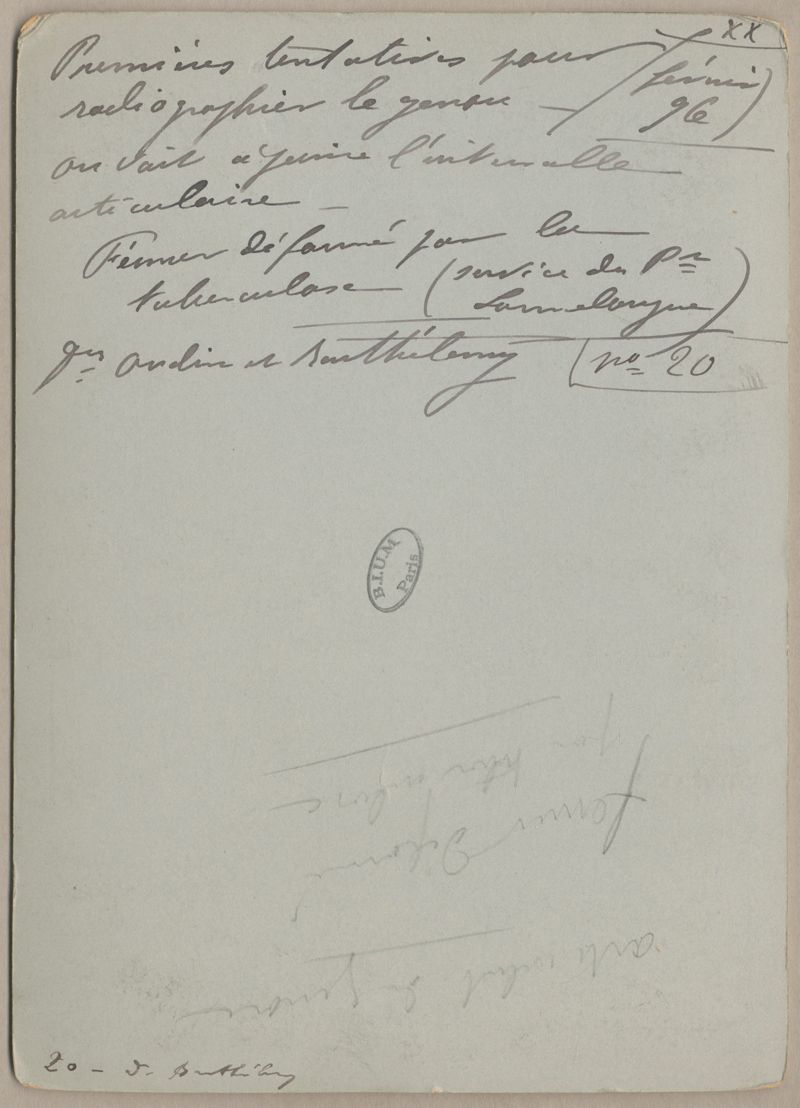 XX
Premières tentatives pour
radiographier le genou — / février
96
on voit à peine l'intervalle
articulaire —
Fémur déformé par la
tuberculose (service du Pr
Lannelongue)
Mrs Oudin et Barthélemy no 20
B.I.U.M
Paris
femur déformé
par tuberculose
articulat du genou
20 - Dr Barthélemy